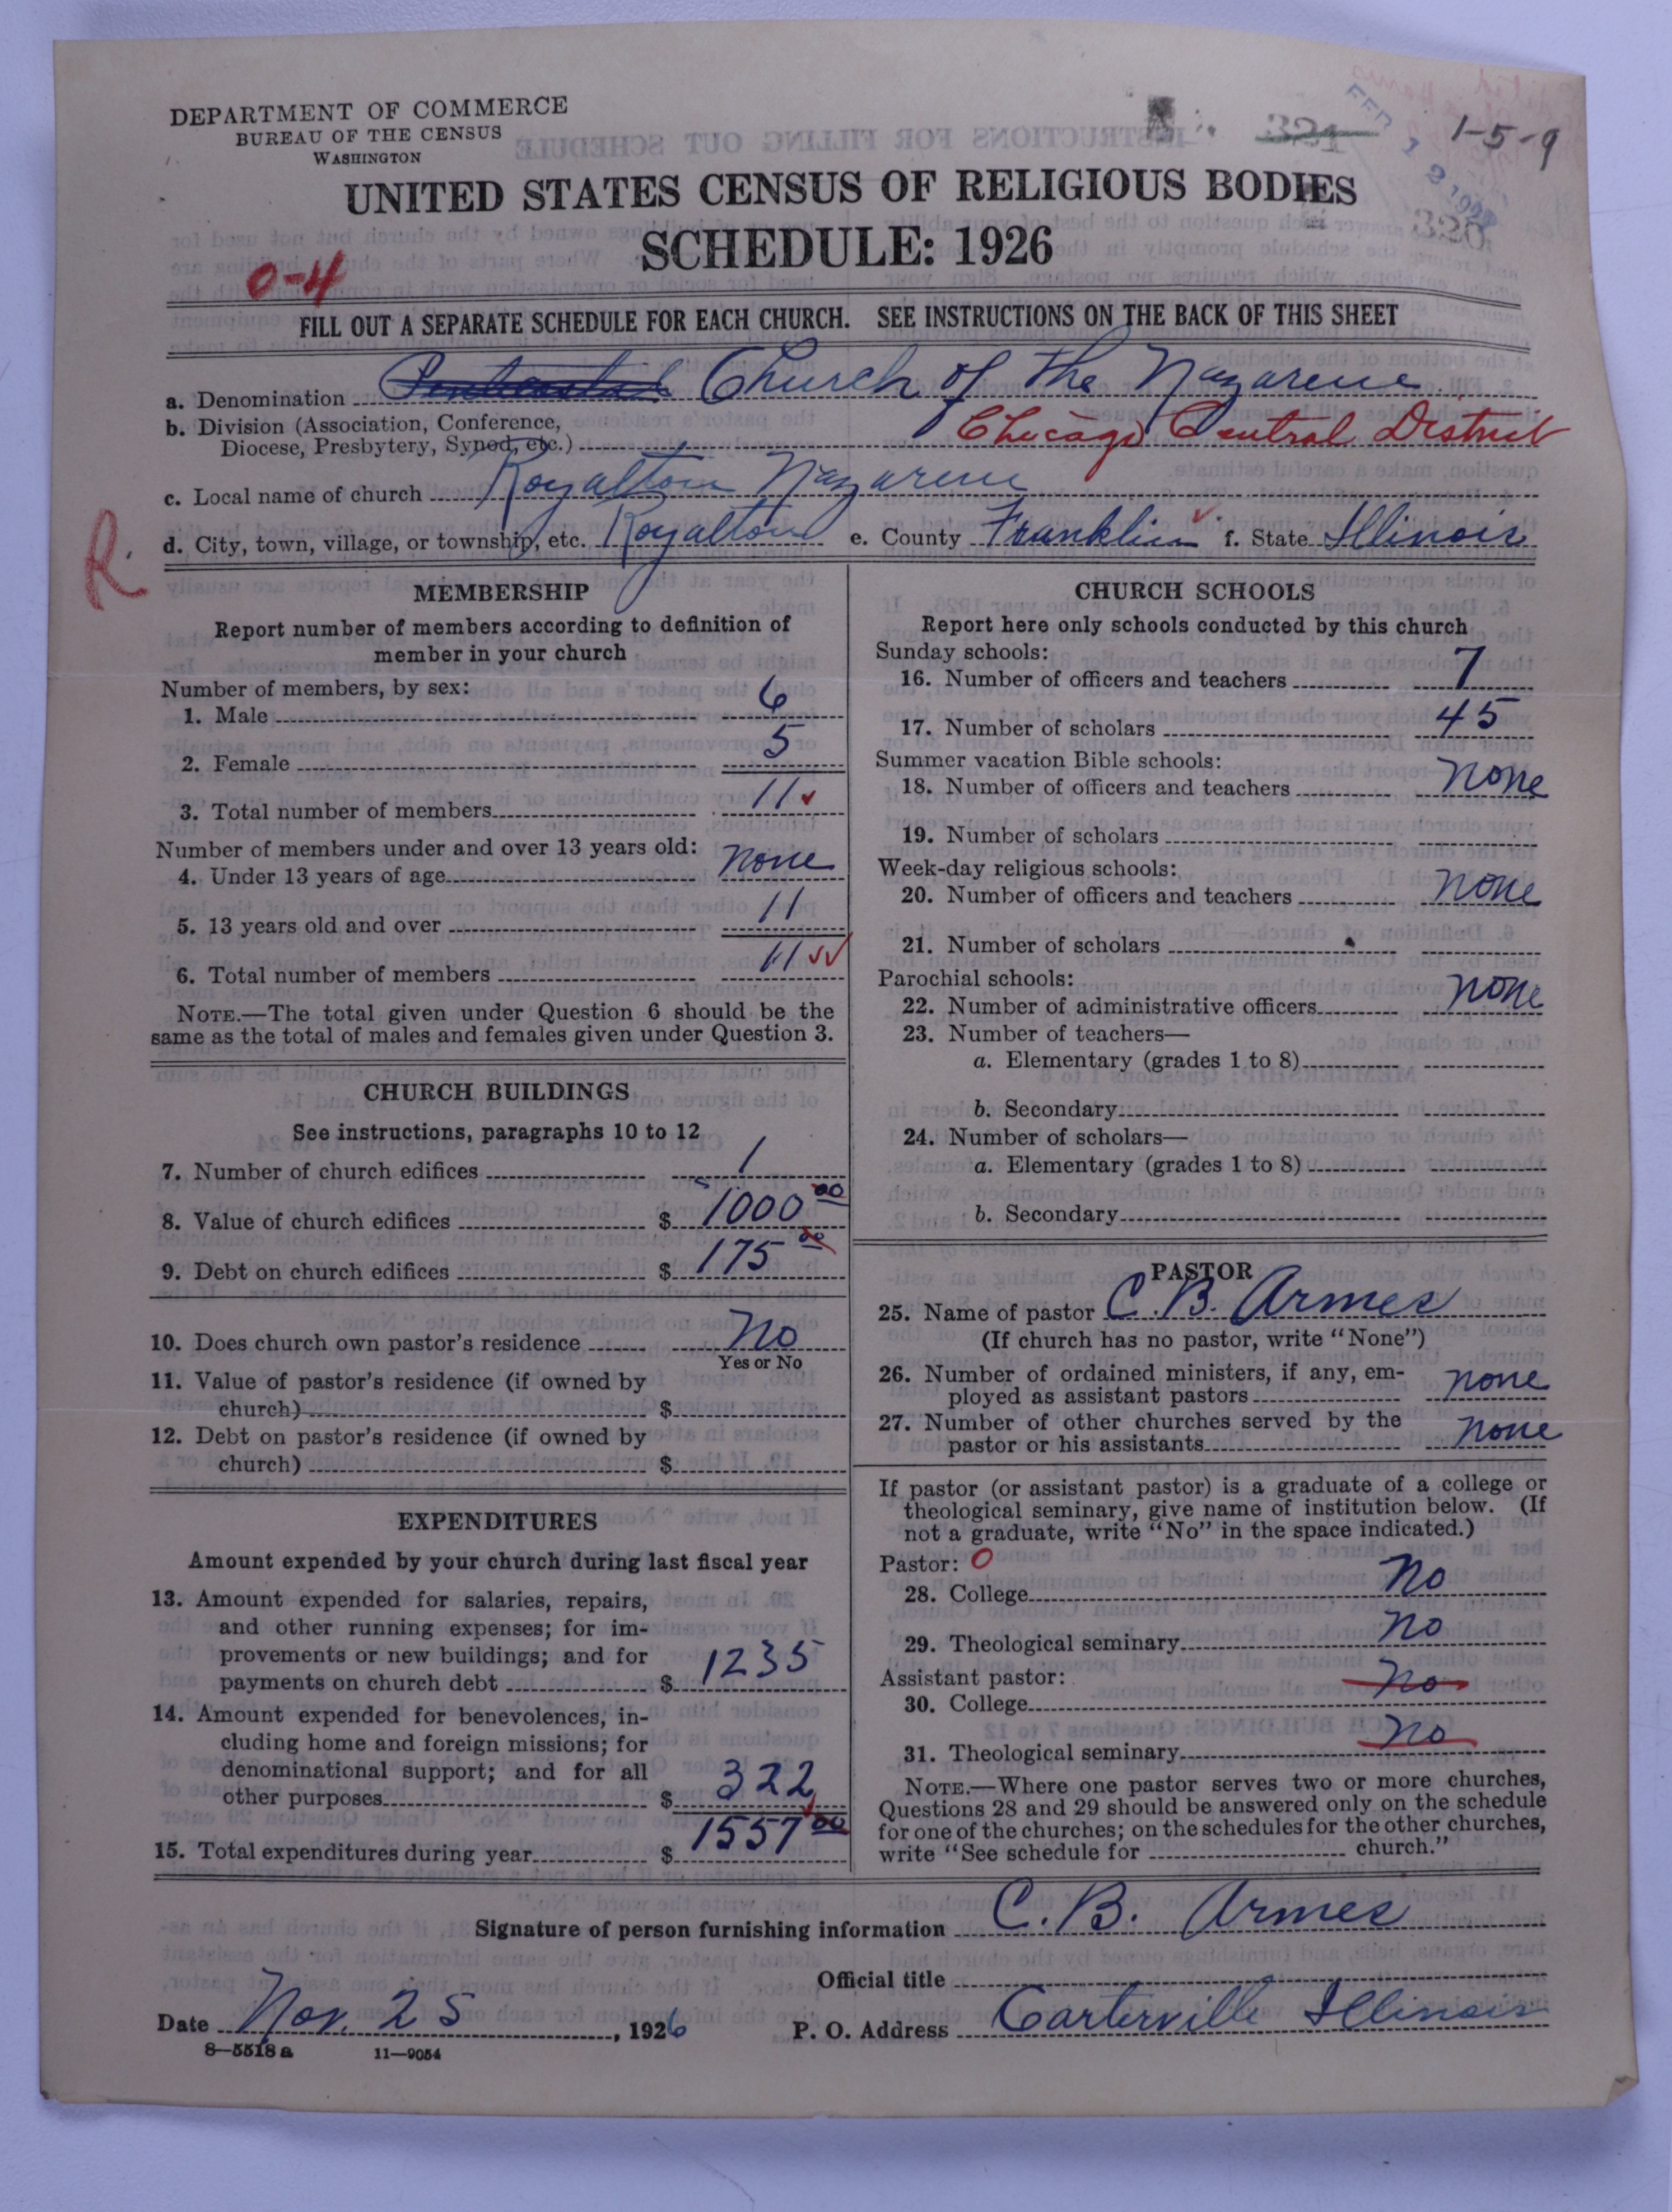 DEPARTMENT OF COMMERCE
BUREAU OF THE CENSUS
WASHINGTON
321
1-5-9
UNITED STATES CENSUS OF RELIGIOUS BODIES
320
SCHEDULE: 1926
0-4
FILL OUT A SEPARATE SCHEDULE FOR EACH CHURCH. SEE INSTRUCTIONS ON THE BACK OF THIS SHEET
a. Denomination Church of the Nazarene
b. Division (Association, Conference,
Diocese, Presbytery, Synod, etc.) Chicago Central District
c. Local name of church Royalton Nazarene
d. City, town, village, or township, etc. Royalton e. County Franklin f. State Illinois
R.
MEMBERSHIP
Report number of members according to definition of
member in your church
Number of members, by sex:
1. Male 6
2. Female 5
3. Total number of members 11
Number of members under and over 13 years old:
4. Under 13 years of age none
5. 13 years old and over 11
6. Total number of members 11
NOTE.—The total given under Question 6 should be the
same as the total of males and females given under Question 3.
CHURCH BUILDINGS
See instructions, paragraphs 10 to 12
7. Number of church edifices 1
8. Value of church edifices $ 1000 00
9. Debt on church edifices $ 175 00
10. Does church own pastor's residence No
Yes or No
11. Value of pastor's residence (if owned by
church) $
12. Debt on pastor's residence (if owned by
church) $
EXPENDITURES
Amount expended by your church during last fiscal year
13. Amount expended for salaries, repairs,
and other running expenses; for im-
provements or new buildings; and for
payments on church debt $ 1235
14. Amount expended for benevolences, in-
cluding home and foreign missions; for
denominational support; and for all
other purposes $ 322
15. Total expenditures during year $ 1557 00
CHURCH SCHOOLS
Report here only schools conducted by this church
Sunday schools:
16. Number of officers and teachers 7
17. Number of scholars 45
Summer vacation Bible schools:
18. Number of officers and teachers none
19. Number of scholars
Week-day religious schools:
20. Number of officers and teachers none
21. Number of scholars
Parochial schools:
22. Number of administrative officers none
23. Number of teachers—
a. Elementary (grades 1 to 8)
b. Secondary
24. Number of scholars—
a. Elementary (grades 1 to 8)
b. Secondary
PASTOR
25. Name of pastor C. B. Armes
(If church has no pastor, write "None")
26. Number of ordained ministers, if any, em-
ployed as assistant pastors none
27. Number of other churches served by the
pastor or his assistants none
If pastor (or assistant pastor) is a graduate of a college or
theological seminary, give name of institution below. (If
not a graduate, write "No" in the space indicated.)
Pastor: 0
28. College No
29. Theological seminary No
Assistant pastor:
30. College No
31. Theological seminary No
NOTE.—Where one pastor serves two or more churches,
Questions 28 and 29 should be answered only on the schedule
for one of the churches; on the schedules for the other churches,
write "See schedule for church."
Signature of person furnishing information C. B. Armes
Official title
Date Nov. 25, 1926 P. O. Address Carterville Illinois
8—5518 a 11—9054